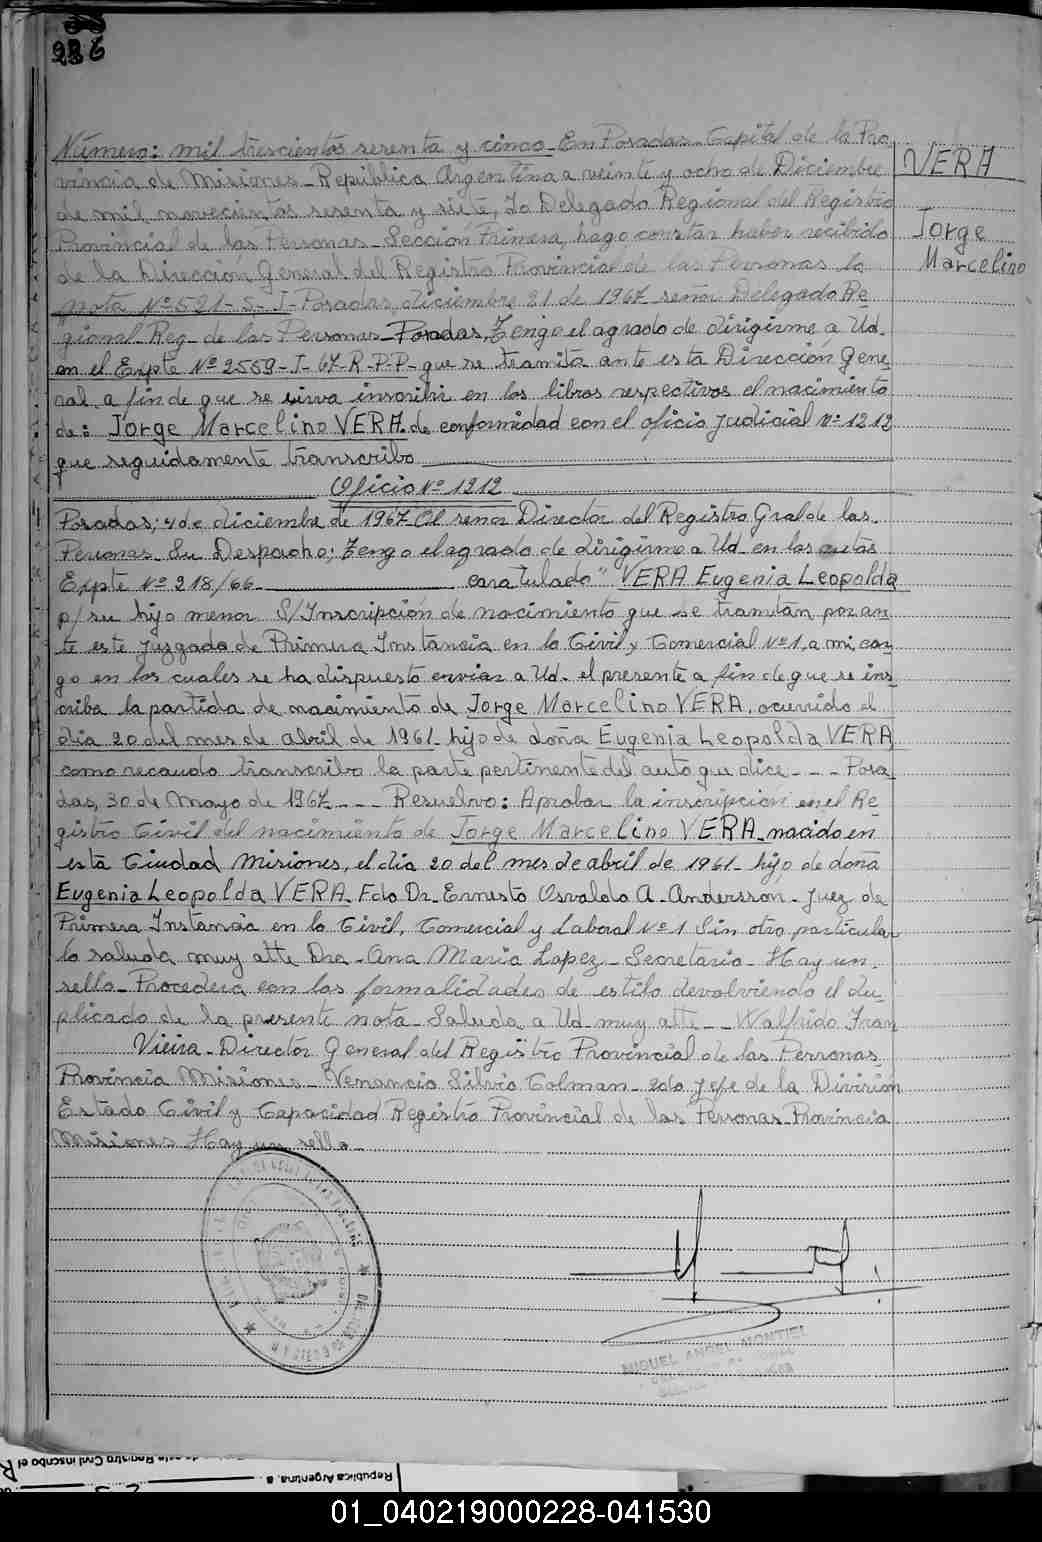 236
Número: mil trescientos sesenta y cinco - En Posadas - Capital de la Pro
vincia de Misiones - República Argentina a veinte y ocho de Diciembre
de mil novecientos sesenta y siete, Yo Delegado Regional del Registro
Provincial de las Personas - Sección Primera, hago constar haber recibido
de la Dirección General del Registro Provincial de las Personas la
nota Nº 521-S-I- Posadas, diciembre 21 de 1967 señor Delegado Re
gional Reg- de las Personas - Posadas, Tengo el agrado de dirigirme a Ud.
en el Expte Nº 2559-I-67-R-P-P- que se tramita ante esta Dirección Gene
ral a fin de que se sirva inscribir en los libros respectivos el nacimiento
de: Jorge Marcelino VERA de conformidad con el oficio judicial Nº 1212
que seguidamente transcribo
Oficio Nº 1212
Posadas; 4 de diciembre de 1967 Al señor Director del Registro Gral de las
Personas - Su Despacho; Tengo el agrado de dirigirme a Ud en los autos
Expte Nº 218/66 caratulado "VERA Eugenia Leopolda
p/ su hijo menor S/Inscripción de nacimiento que se tramitan por an
te este juzgado de Primera Instancia en lo Civil y Comercial Nº 1, a mi car
go en los cuales se ha dispuesto enviar a Ud- el presente a fin de que se ins
criba la partida de nacimiento de Jorge Marcelino VERA, ocurrido el
día 20 del mes de abril de 1961 - hijo de doña Eugenia Leopolda VERA
como recaudo transcribo la parte pertinente del auto que dice - - - Posa
das, 30 de Mayo de 1967 - - - Resuelvo: Aprobar la inscripción en el Re
gistro Civil del nacimiento de Jorge Marcelino VERA - nacido en
esta Ciudad Misiones, el día 20 del mes de abril de 1961 - hijo de doña
Eugenia Leopolda VERA - Fdo Dr. Ernesto Osvaldo A. Andersson - Juez de
Primera Instancia en lo Civil, Comercial y Laboral Nº 1 Sin otro particular
lo saluda muy atte Dra - Ana Maria Lopez - Secretaria - Hay un
sello - Procederá con las formalidades de estilo devolviendo el du
plicado de la presente nota - Saluda a Ud muy atte - Walfrido Fran
Vieira - Director General del Registro Provincial de las Personas
Provincia Misiones - Venancio Silvio Colman - 2do Jefe de la División
Estado Civil y Capacidad Registro Provincial de las Personas - Provincia
Misiones Hay un sello -
VERA
Jorge
Marcelino
MIGUEL ANGEL MONTIEL
Republica Argentina, a
Registro Civil inscribo el
01_040219000228-041530